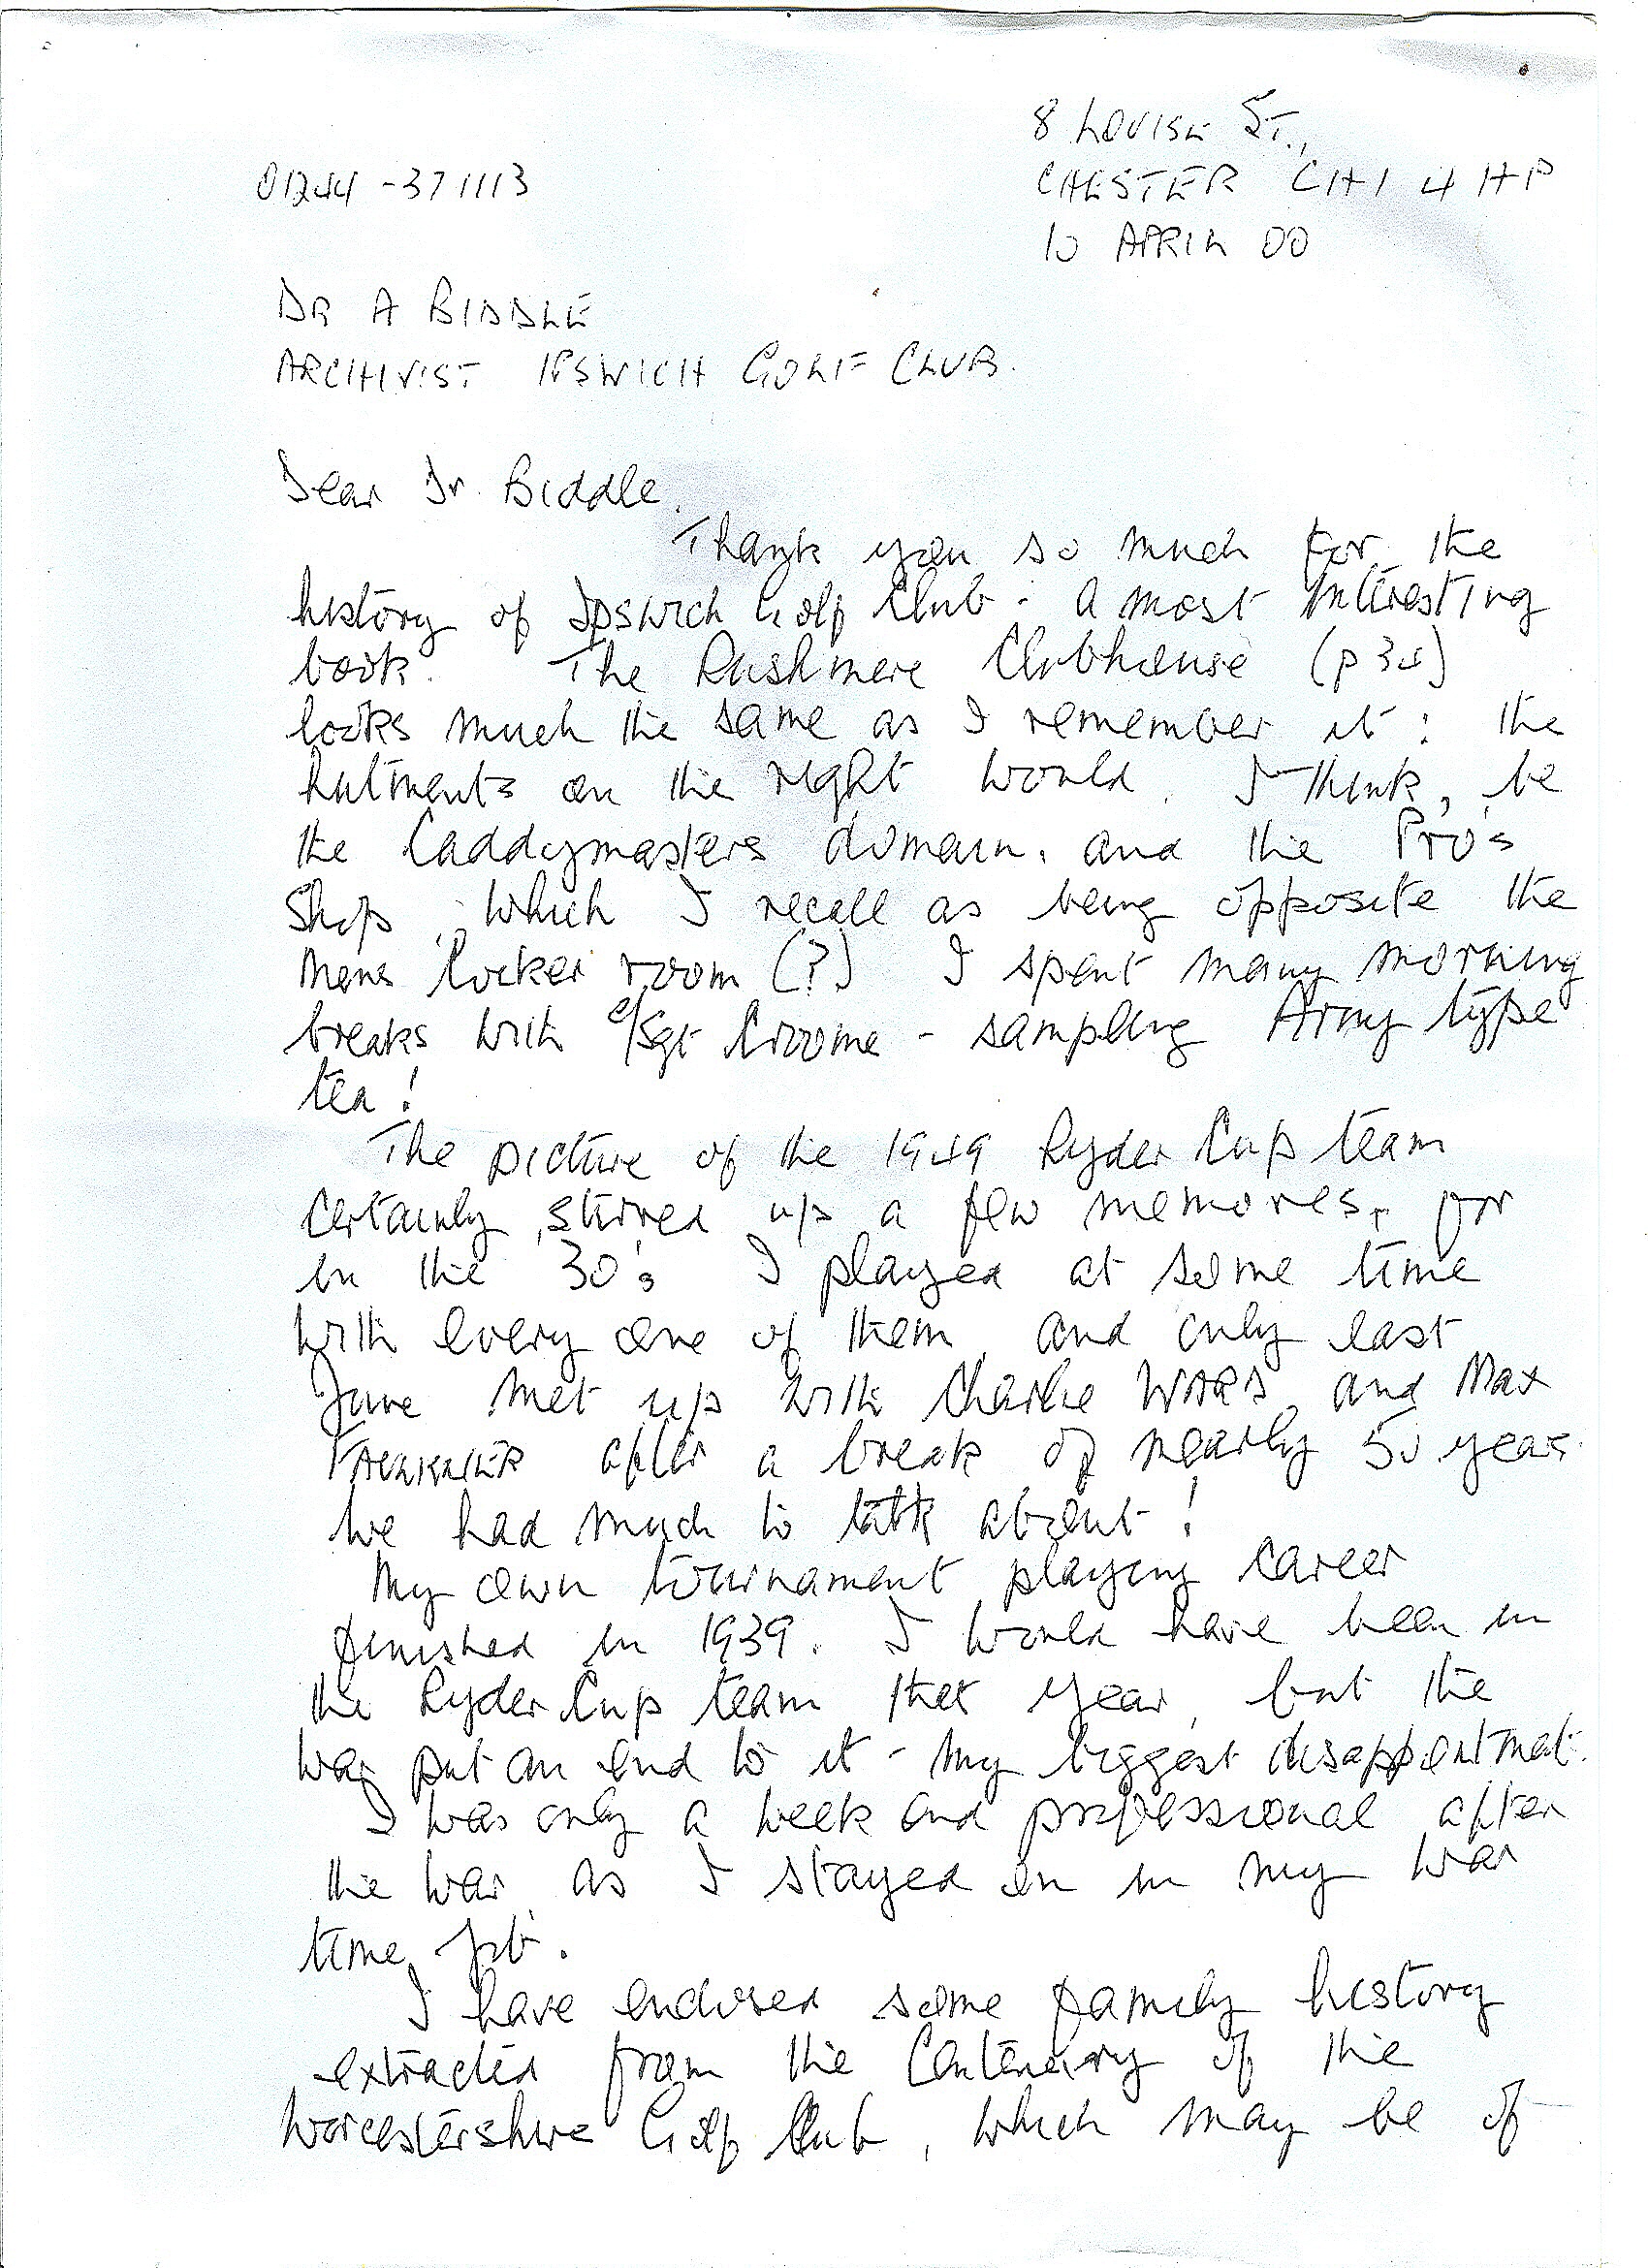 8 LOUISE ST.,
01244-371113
CHESTER CH1 4HP
10 APRIL 00
DR A BIDDLE
ARCHIVIST IPSWICH GOLF CLUB.
Dear Dr. Biddle,
Thank you so much for the
history of Ipswich Golf Club - a most interesting
book. The Rushmere Clubhouse (p 34)
looks much the same as I remember it: the
hutments on the right would, I think, be
the Caddymasters domain, and the Pro's
Shop, which I recall as being opposite the
mens locker room (?) I spent many morning
breaks with C/Sgt Croome - sampling Army type
tea!
The picture of the 1949 Ryder Cup team
certainly stirred up a few memories, for
in the 30's I played at some time
with every one of them, and only last
June met up with Charlie WARD and Max
FAULKNER after a break of nearly 50 years.
We had much to talk about!
My own tournament playing career
finished in 1939. I would have been in
the Ryder Cup team that year, but the
war put an end to it - my biggest disappointment.
I was only a week end professional after
the war, as I stayed on in my war
time job.
I have enclosed some family history
extracted from the Centenary of the
Worcestershire Golf Club, which may be of